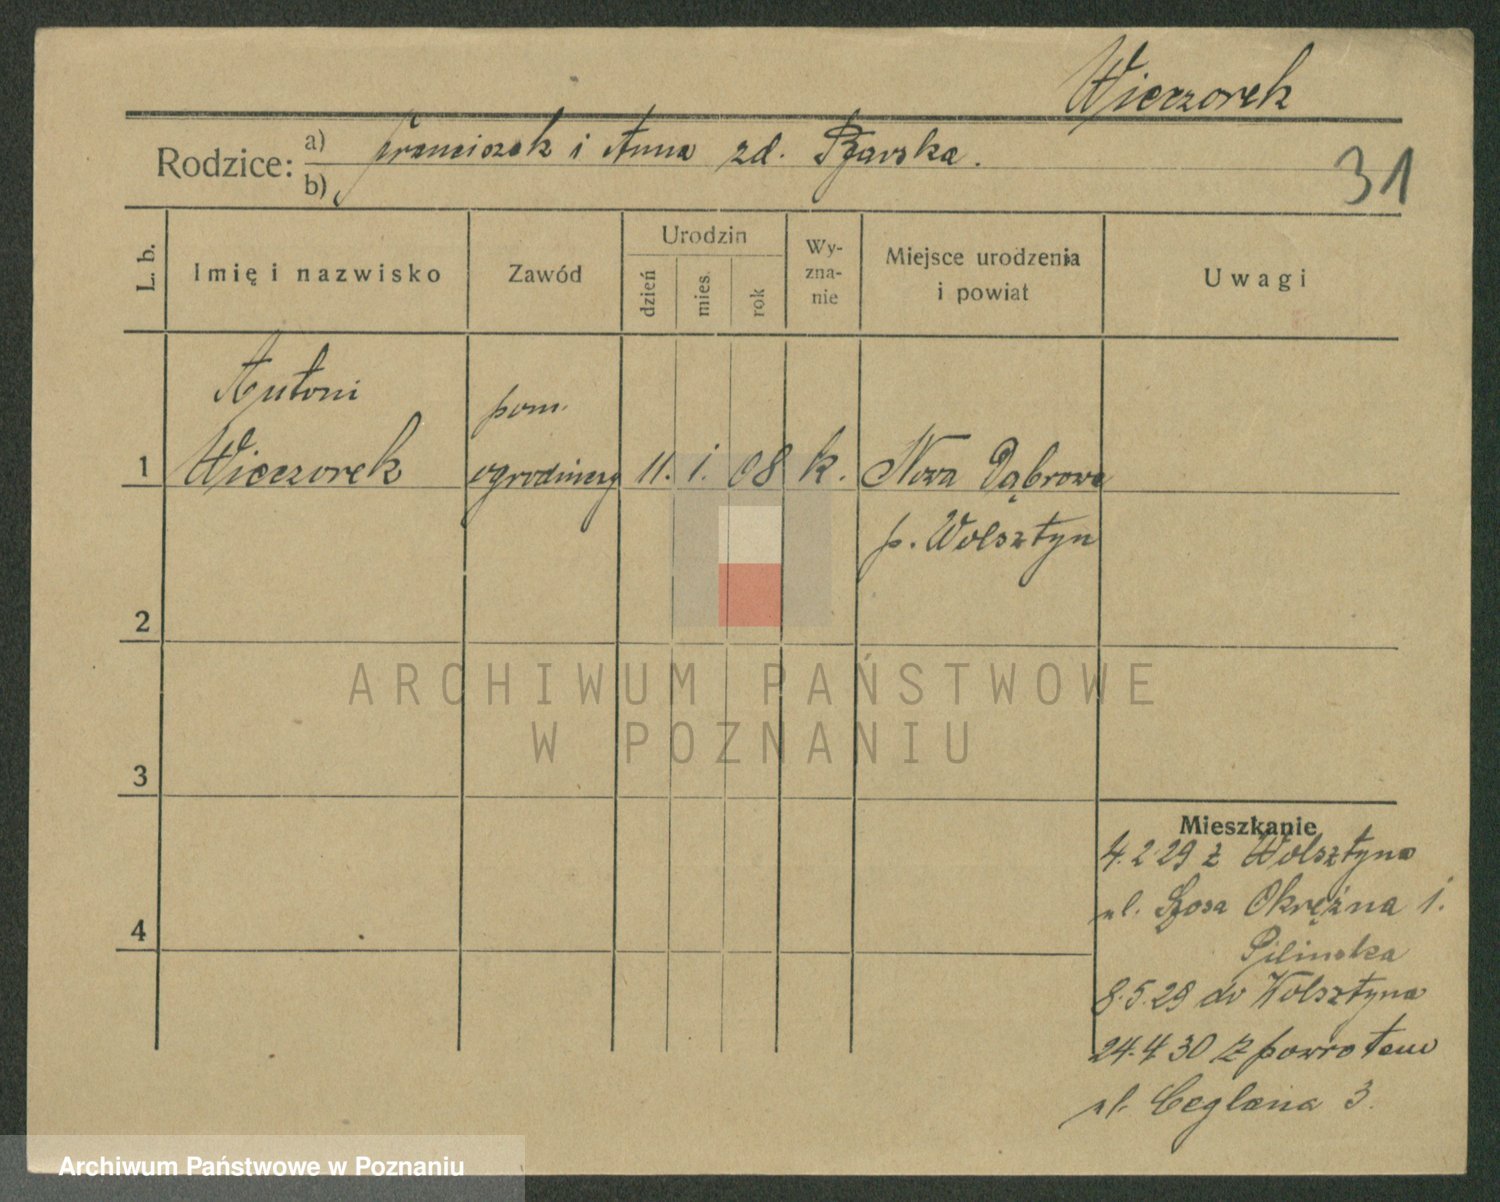 Wieczorek
Rodzice: a) Franciszek i Anna zd.
b)
31
L. b.
Imię i nazwisko
Zawód
Urodzin
dzień
mies.
rok
Wy-
zna-
nie
Miejsce urodzenia
i powiat
Uwagi
Antoni
pom.
1 Wieczorek ogrodniczy 11. 1. 08 k. Nowa Dąbrowa
p. Wolsztyn
2
3
4
Mieszkanie
4.2.29 z Wolsztyna
ul. Szosa Okrężna 1.
Pilinska
8.5.29 do Wolsztyna
24.4.30 z powrotem
ul. Ceglana 3.
ARCHIWUM PAŃSTWOWE
W POZNANIU
Archiwum Państwowe w Poznaniu